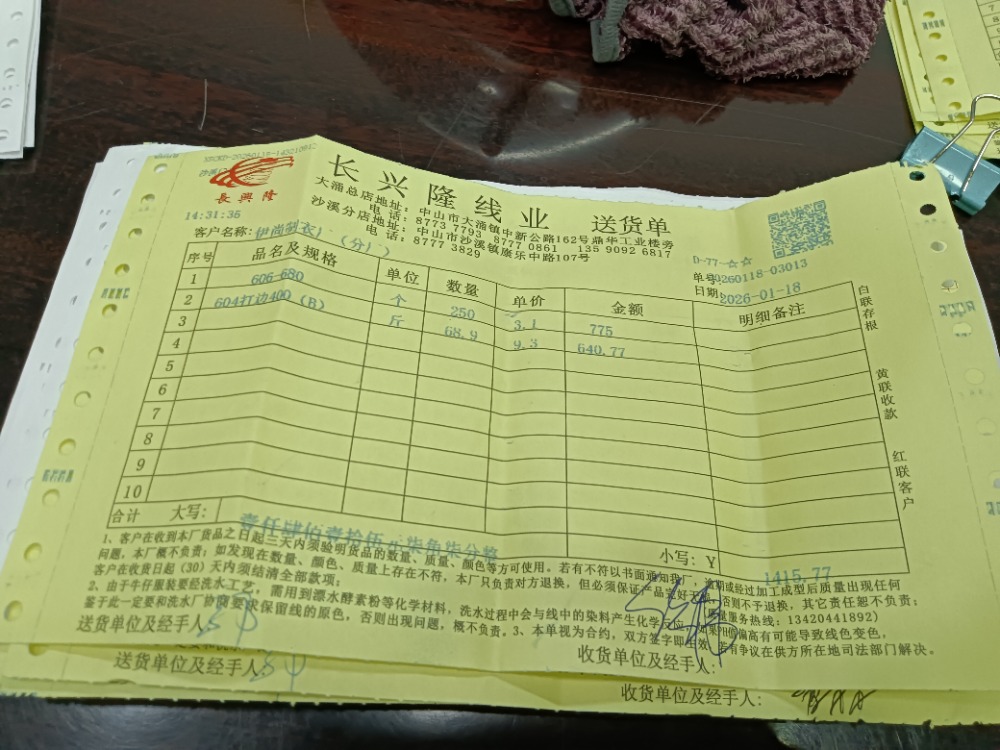 长兴隆线业 送货单
長興隆
大涌总店地址：中山市大涌镇中新公路162号鼎华工业楼旁
电话：8773 7793 8777 0861 135 9092 6817
沙溪分店地址：中山市沙溪镇康乐中路107号
电话：8777 3829
14:31:36
客户名称：伊尚制衣厂（分）
D-77-☆☆
单号：20260118-03013
日期：2026-01-18
序号 品名及规格 单位 数量 单价 金额 明细备注
1 606-680 个 250 3.1 775
2 604打边400（B） 斤 68.9 9.3 640.77
3
4
5
6
7
8
9
10
白联存根
黄联收款
红联客户
合计 大写： 壹仟肆佰壹拾伍元柒角柒分整 小写：Y 1415.77
1、客户在收到本厂货品之日起三天内须验明货品的数量、质量、颜色等方可使用。若有不符以书面通知我厂，逾期或经过加工成型后质量出现任何
问题，本厂概不负责；如发现在数量、颜色、质量上存在不符，本厂只负责对方退换，但必须保证产品完好无损，否则不予退换，其它责任恕不负责；
客户在收货日起（30）天内须结清全部款项；
服务热线：13420441892）
2、由于牛仔服装要经洗水工艺，需用到漂水酵素粉等化学材料，洗水过程中会与线中的染料产生化学反应，如果PH值偏高有可能导致线色变色，
鉴于此一定要和洗水厂协商要求保留线的原色，否则出现问题，概不负责。3、本单视为合约，双方签字即生效，若有争议在供方所在地司法部门解决。
送货单位及经手人：
收货单位及经手人：
送货单位及经手人：
收货单位及经手人：